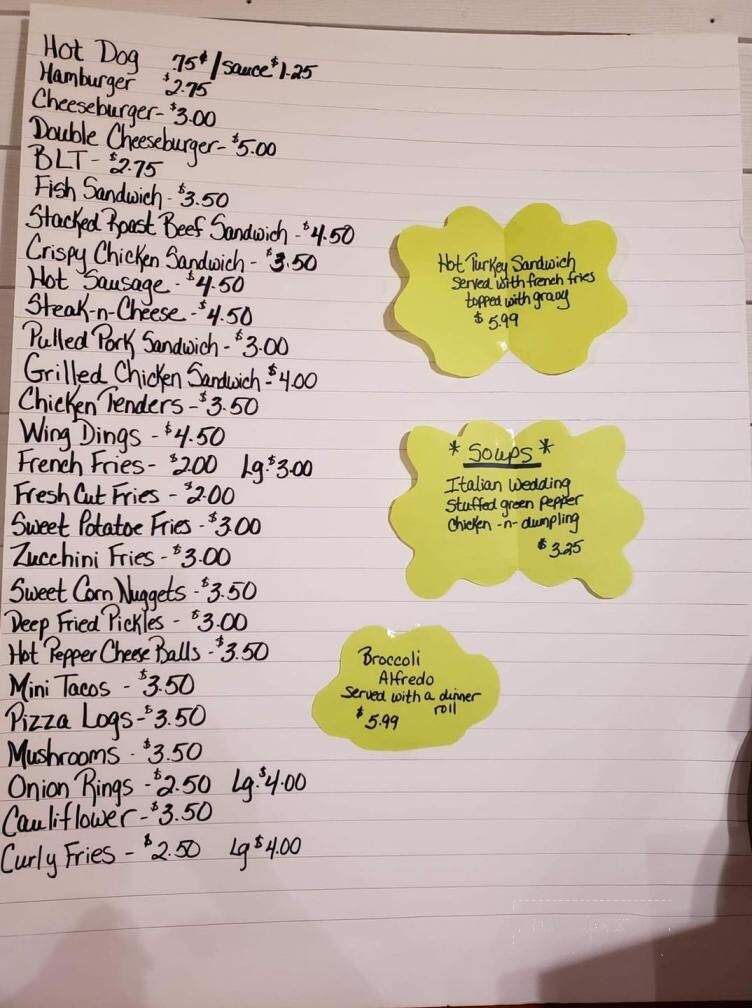 Hot Dog .75¢/sauce $1.25
Hamburger $2.75
Cheeseburger- $3.00
Double Cheeseburger- $5.00
BLT- $2.75
Fish Sandwich- $3.50
Stacked Roast Beef Sandwich - $4.50
Crispy Chicken Sandwich - $3.50
Hot Sausage - $4.50
Steak-n-Cheese - $4.50
Pulled Pork Sandwich - $3.00
Grilled Chicken Sandwich - $4.00
Chicken Tenders - $3.50
Wing Dings - $4.50
French Fries - $2.00 Lg. $3.00
Fresh Cut Fries - $2.00
Sweet Potatoe Fries - $3.00
Zucchini Fries - $3.00
Sweet Corn Nuggets - $3.50
Deep Fried Pickles - $3.00
Hot Pepper Cheese Balls - $3.50
Mini Tacos - $3.50
Pizza Logs - $3.50
Mushrooms - $3.50
Onion Rings - $2.50 Lg. $4.00
Cauliflower - $3.50
Curly Fries - $2.50 Lg $4.00
Hot Turkey Sandwich
Served with french fries
topped with gravy
$5.99
* Soups *
Italian Wedding
Stuffed green pepper
Chicken -n- dumpling
$3.25
Broccoli
Alfredo
Served with a dinner
roll
$5.99